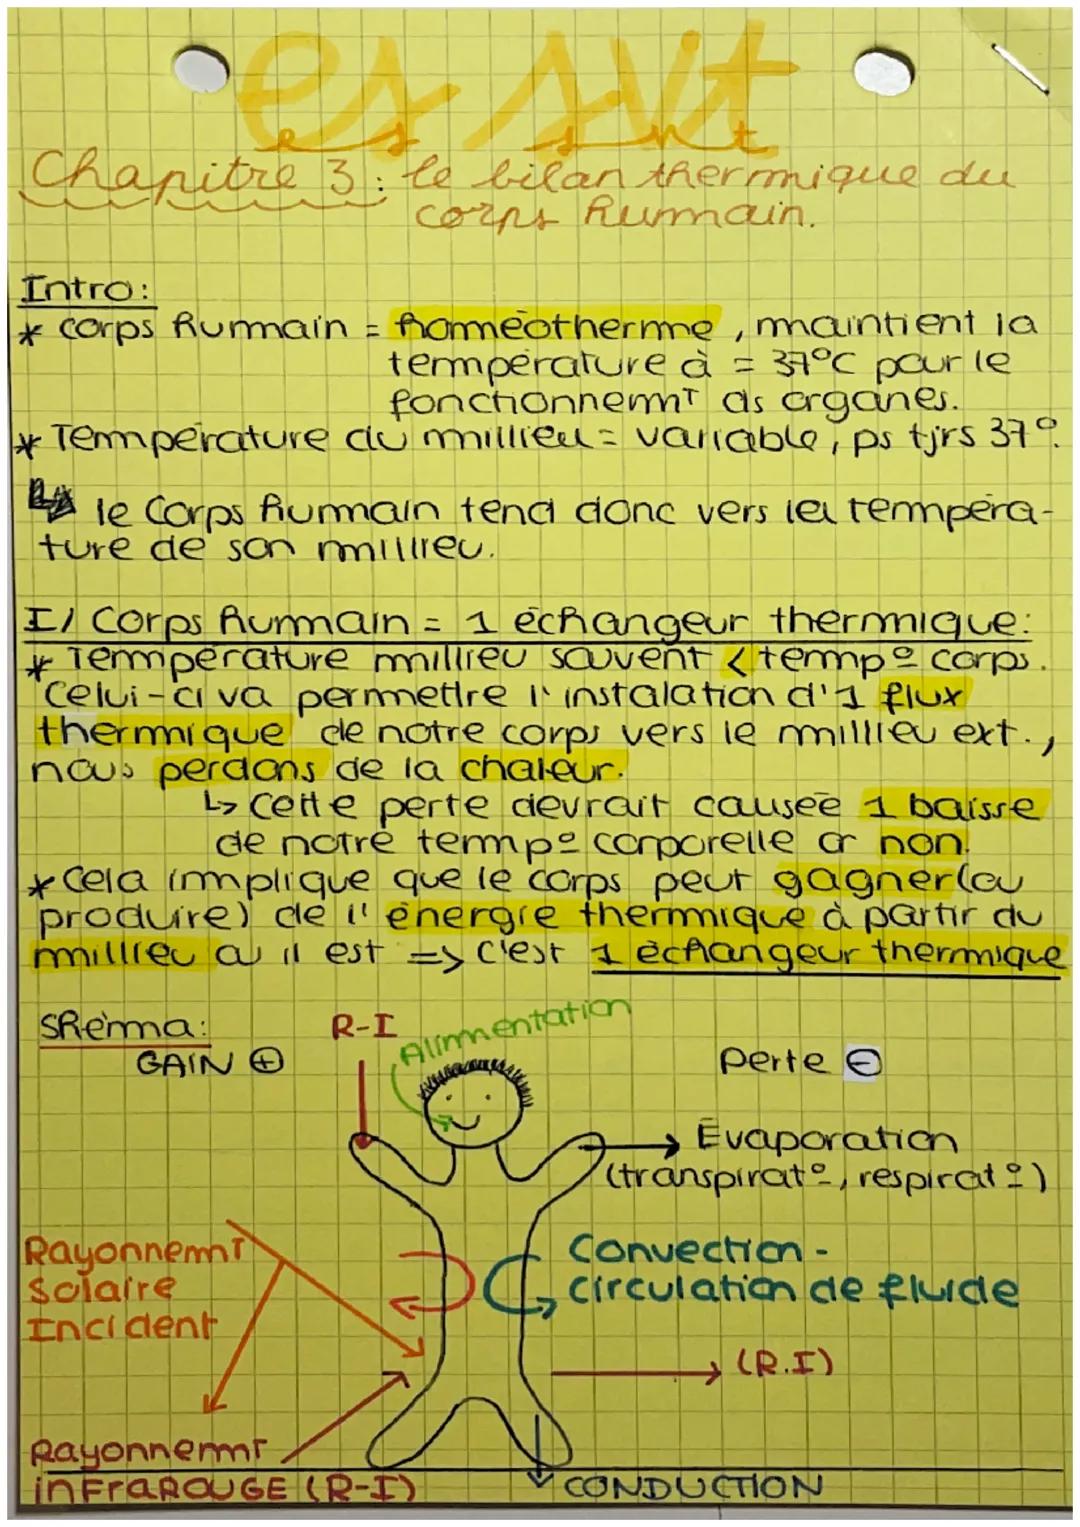 es svt
es svt
Chapitre 3: le bilan thermique du
corps humain.
Intro:
* corps humain = homéotherme, maintient la
température à = 37°C pour le
fonctionnemT ds organes.
* Température du millieu = variable, ps tjrs 37°.
↳ le corps humain tend donc vers la tempéra-
ture de son millieu.
I/ Corps humain = 1 échangeur thermique:
* Température millieu souvent < temp° corps.
Celui-ci va permettre l'instalation d'1 flux
thermique de notre corps vers le millieu ext.,
nous perdons de la chaleur.
↳ cette perte devrait causée 1 baisse
de notre temp° corporelle or non.
* Cela implique que le corps peut gagner (ou
produire) de l'énergie thermique à partir du
millieu où il est => c'est 1 échangeur thermique
Shéma:
R-I
Alimentation
GAIN ⊕
Perte ⊖
Évaporation
(transpirat°, respirat°)
RayonnemT
Solaire
Incident
Convection -
circulation de fluide
(R.I)
RayonnemT
inFraROUGE (R-I)
CONDUCTION